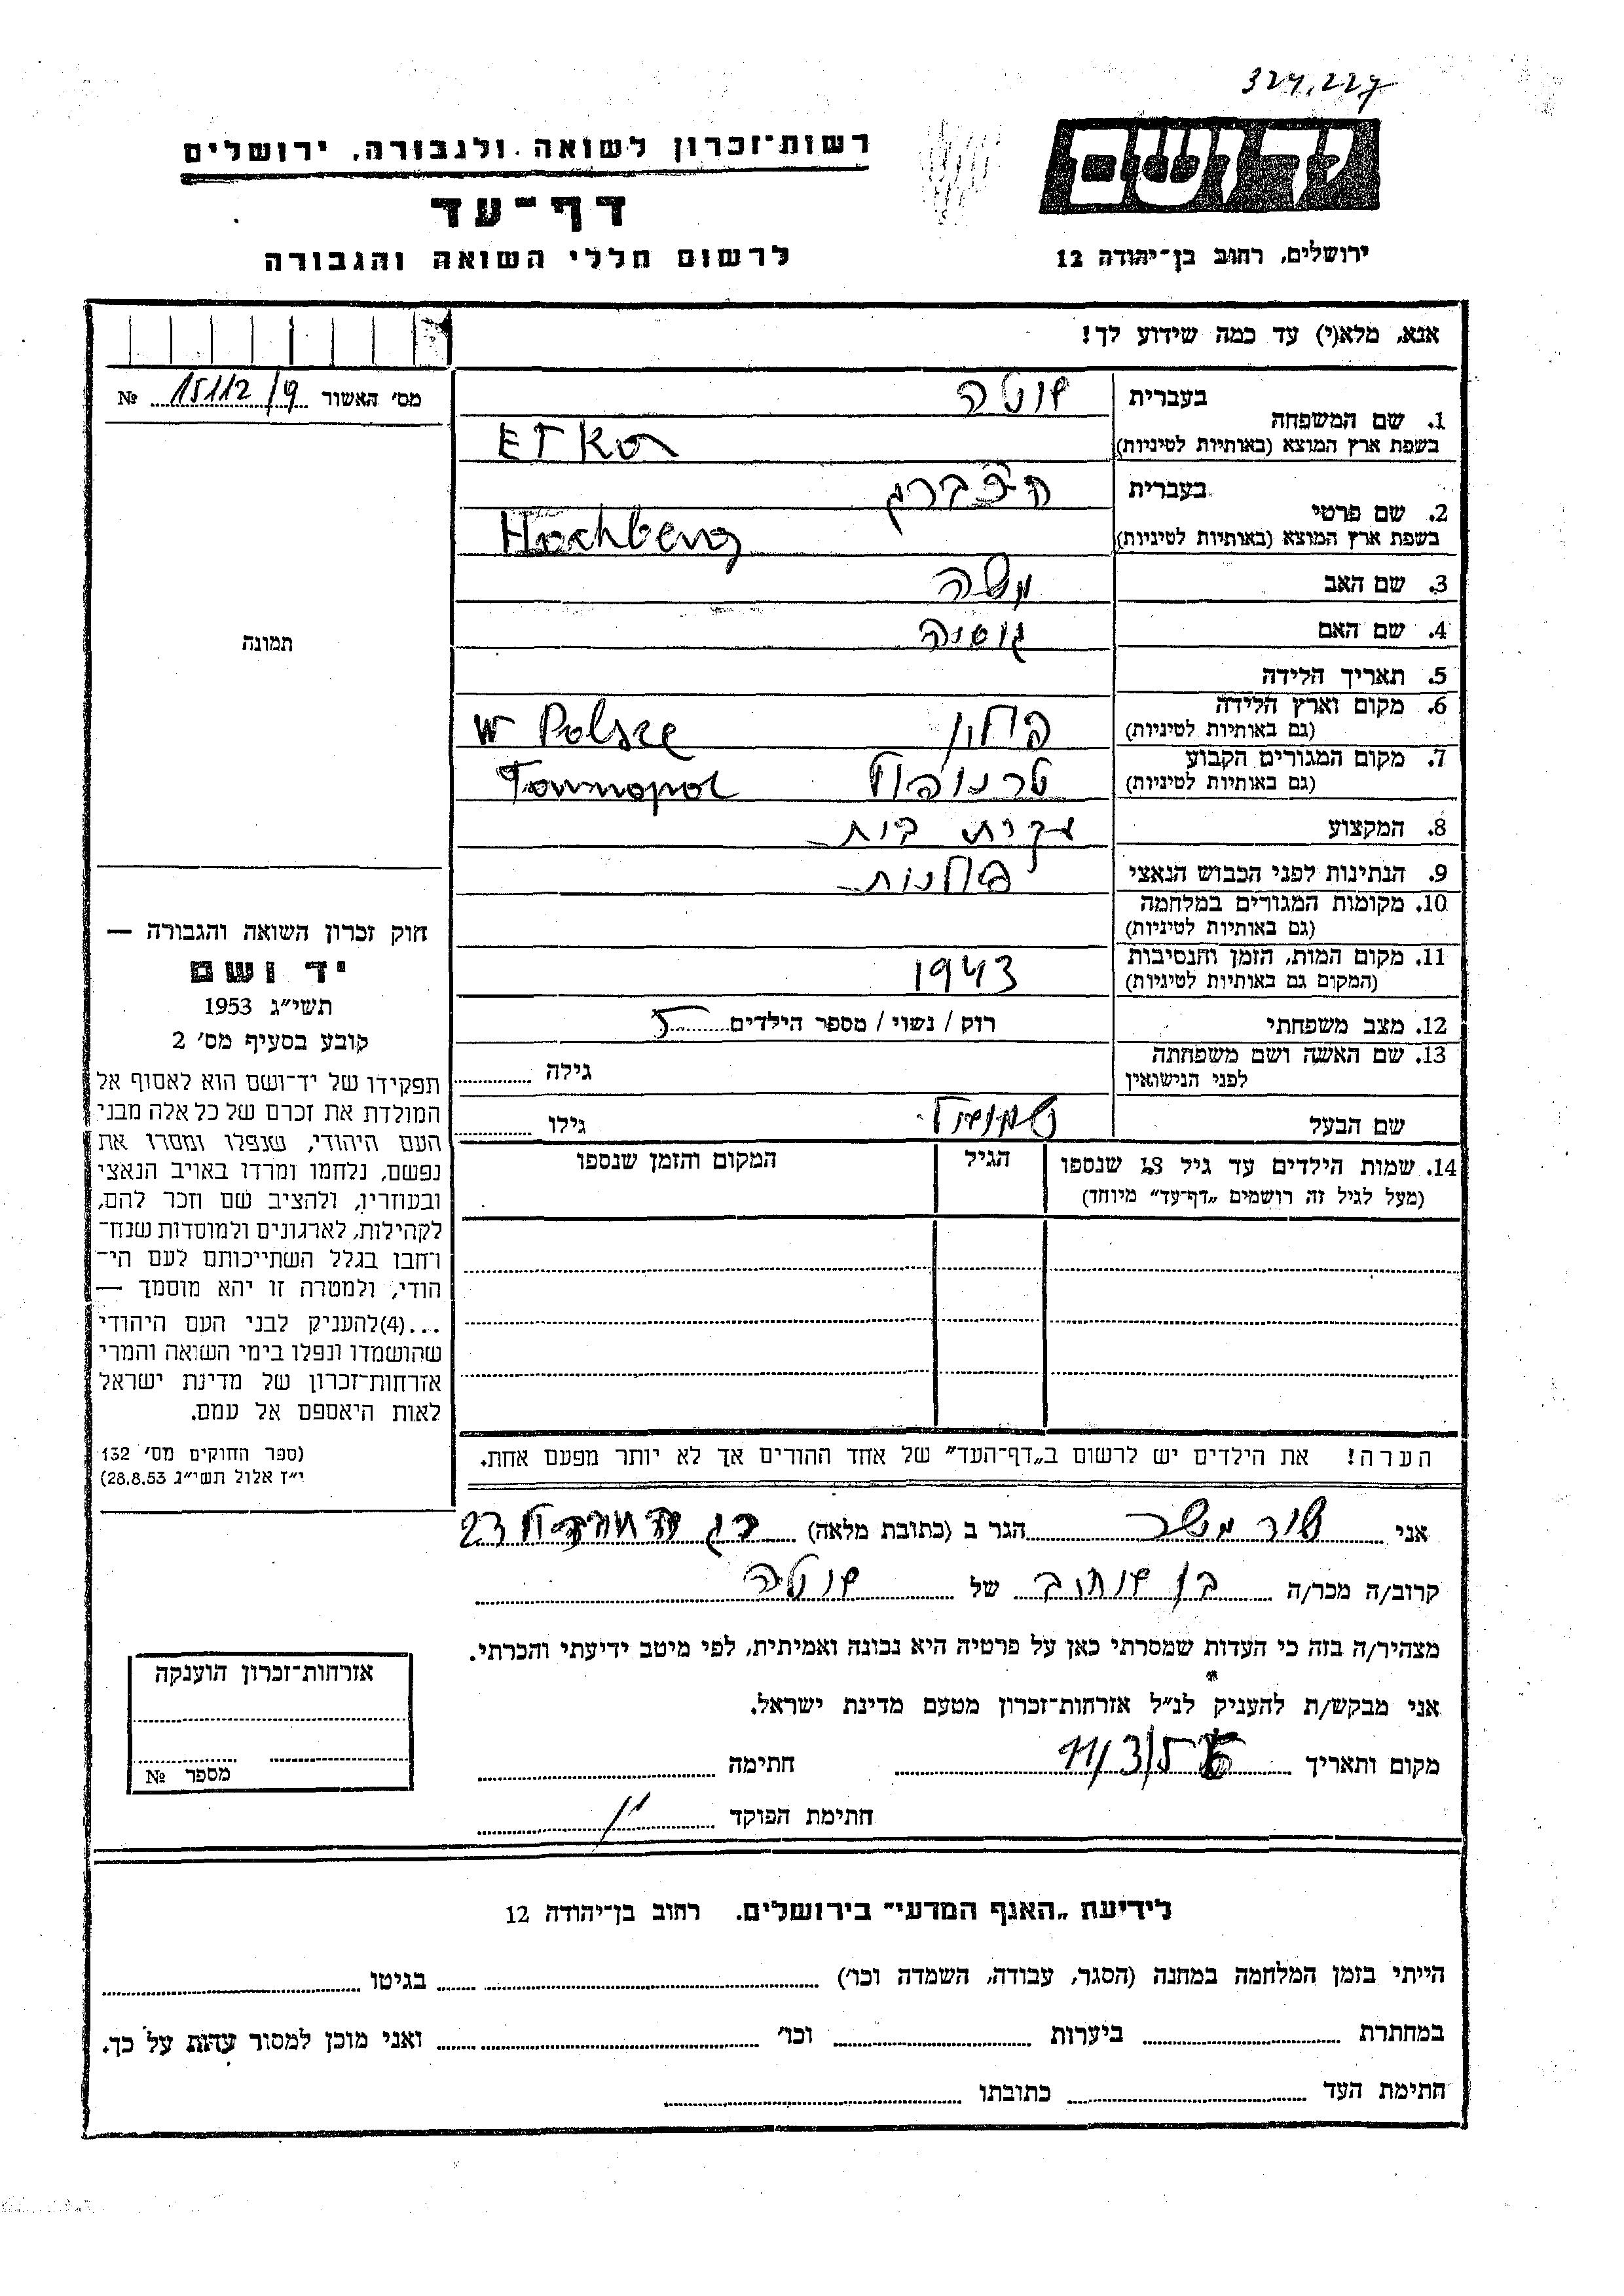 324,227
רשות־זכרון לשואה ולגבורה, ירושלים
דף־עד
לרשום חללי השואה והגבורה
ידושם
ירושלים, רחוב בן־יהודה 12
אנא, מלא(י) עד כמה שידוע לך!
מס׳ האשור 15112/9 №
1. שם המשפחה
בעברית
בשפת ארץ המוצא (באותיות לטיניות)
ETKA
2. שם פרטי
בעברית
הכברג
בשפת ארץ המוצא (באותיות לטיניות) Hochberg
3. שם האב משה
4. שם האם גוסטה
5. תאריך הלידה
6. מקום וארץ הלידה
(גם באותיות לטיניות) פולין W Polsce
7. מקום המגורים הקבוע
(גם באותיות לטיניות) טרנופול Tarnopol
8. המקצוע עקרת בית
9. הנתינות לפני הכבוש הנאצי פולנית
10. מקומות המגורים במלחמה
(גם באותיות לטיניות)
11. מקום המות, הזמן והנסיבות
(המקום גם באותיות לטיניות) 1943
12. מצב משפחתי רוק / נשוי / מספר הילדים 5
13. שם האשה ושם משפחתה
לפני הנישואין גילה
שם הבעל שמואל גילו
14. שמות הילדים עד גיל 18 שנספו
(מעל לגיל זה רושמים „דף־עד” מיוחד)
הגיל
המקום והזמן שנספו
תמונה
חוק זכרון השואה והגבורה —
יד ושם
תשי״ג 1953
קובע בסעיף מס׳ 2
תפקידו של יד־ושם הוא לאסוף אל
המולדת את זכרם של כל אלה מבני
העם היהודי, שנפלו ומסרו את
נפשם, נלחמו ומרדו באויב הנאצי
ובעוזריו, ולהציב שם וזכר להם,
לקהילות, לארגונים ולמוסדות שנח־
רחבו בגלל השתייכותם לעם הי־
הודי, ולמטרה זו יהא מוסמך —
...(4) להעניק לבני העם היהודי
שהושמדו ונפלו בימי השואה והמרי
אזרחות־זכרון של מדינת ישראל
לאות היאספם אל עמם.
(ספר החוקים מס׳ 132
י״ז אלול תשי״ג 28.8.53)
הערה! את הילדים יש לרשום ב„דף־העד” של אחד ההורים אך לא יותר מפעם אחת.
אני שור משה הגר ב (כתובת מלאה) 23
קרוב/ה מכר/ה בן של
מצהיר/ה בזה כי העדות שמסרתי כאן על פרטיה היא נכונה ואמיתית, לפי מיטב ידיעתי והכרתי.
אני מבקש/ת להעניק לנ״ל אזרחות־זכרון מטעם מדינת ישראל.
מקום ותאריך 11/3/5 חתימה
חתימת הפוקד
אזרחות־זכרון הוענקה
מספר №
לידיעת „האנף המדעי” בירושלים. רחוב בן־יהודה 12
הייתי בזמן המלחמה במחנה (הסגר, עבודה, השמדה וכו׳) בגיטו
במחתרת ביערות וכו׳ ואני מוכן למסור עדות על כך.
חתימת העד כתובתו